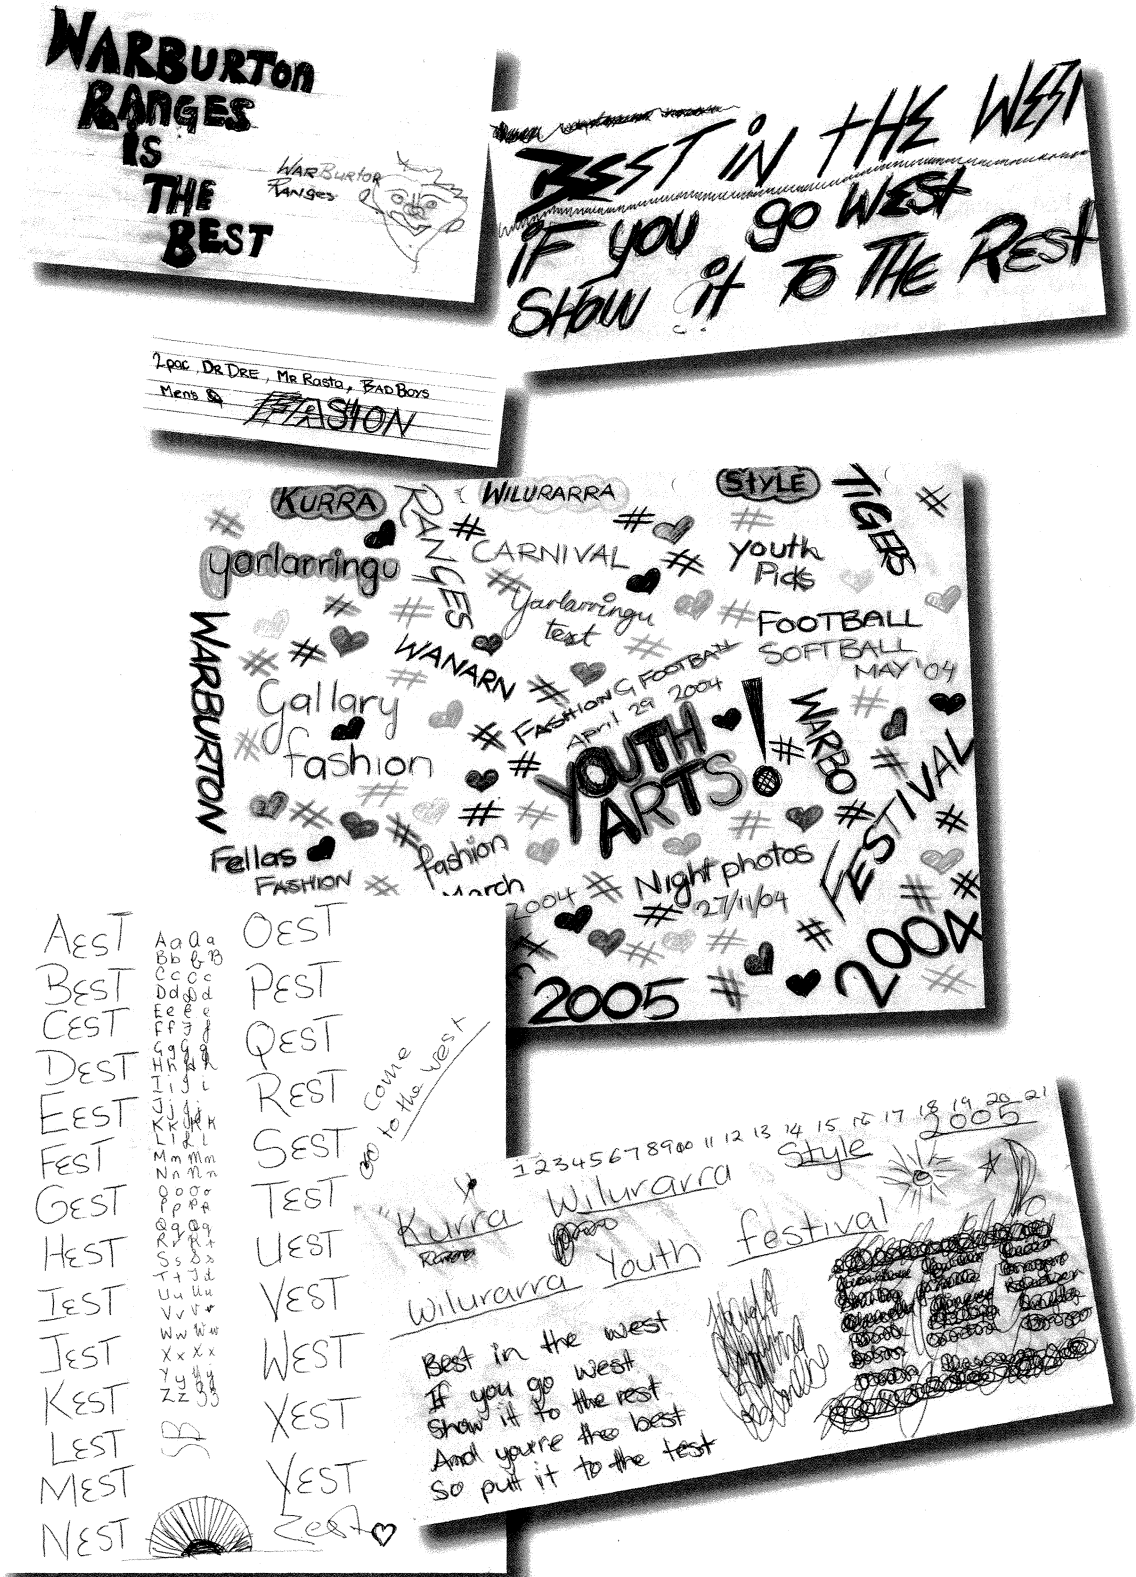 WARBURTON
RANGES
is
THE
BEST
WARBURTOR
RANGES
BEST iN tHE WEST
iF YOU gO WEST
SHOW it TO THE REST
2pac, DR DRE, MR Rasta, BAD BOYS
Mens FASHION
KURRA
RANGES
WILURARRA
STYLE
TIGERS
yarlarringu
CARNIVAL
youth
Pics
Yarlarringu
text
FOOTBALL
SOFTBALL
MAY '04
WARBURTON
WANARN
Gallary
fashion
FASHION G FOOTBALL
April 29 2004
YOUTH
ARTS!
WARBO
FESTIVAL
Fellas
FASHION
fashion
March
2004
Night photos
27/11/04
2004
2005
AEST
BEST
CEST
DEST
EEST
FEST
GEST
HEST
IEST
JEST
KEST
LEST
MEST
NEST
A a a a
B b b B
C c C c
D d D d
E e e e
F f F f
G g G g
H h H h
I i I i
J j j j
K K K K
L l L l
M m M m
N n N n
O o O o
P p P p
Q q Q q
R r R r
S s S s
T t T t
U u U u
V v V v
W w W w
X x X x
Y y y y
Z z z z
SB
OEST
PEST
QEST
REST
SEST
TEST
UEST
VEST
WEST
XEST
YEST
Zest
Come
to the west
1 2 3 4 5 6 7 8 9 10 11 12 13 14 15 16 17 18 19 20 21
Kurra Wilurarra Style 2005
Wilurarra Youth festival
Best in the west
If you go west
Show it to the rest
And you're the best
So putt it to the test